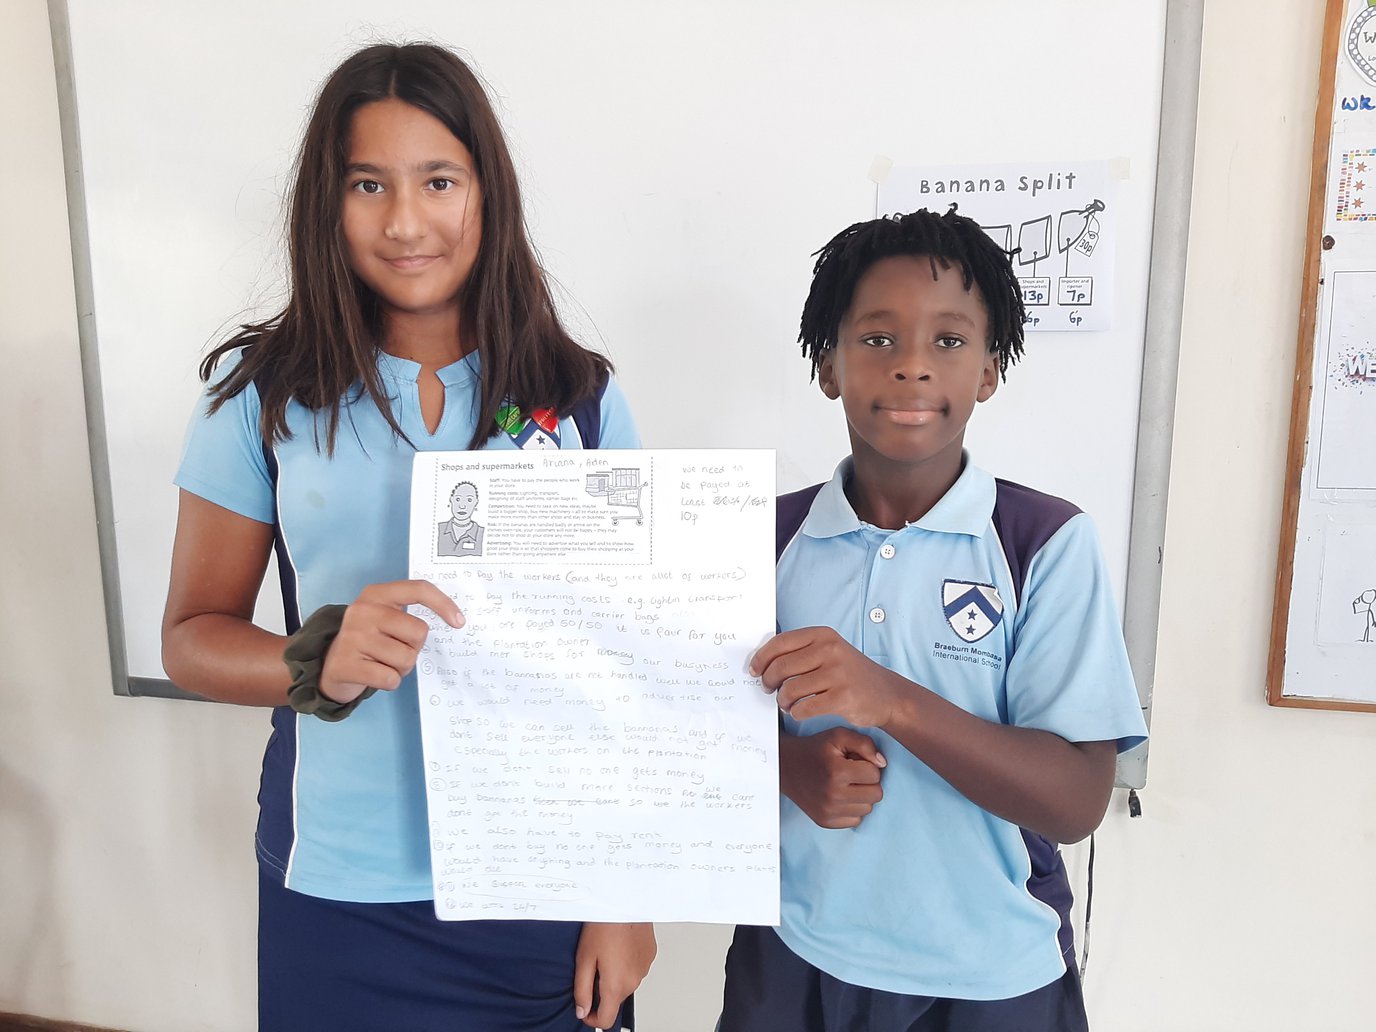 Banana Split
30p
Shops and supermarkets
Importer and ripener
13p
7p
6p
6p
WE
Shops and supermarkets Ariana, Aden
Staff: You have to pay the people who work in your store.
Running costs: Lighting, transport, designing of staff uniforms, carrier bags etc.
Competition: You need to take on new ideas, maybe
build a bigger shop, buy new machinery – all to make sure you
make more money than other shops and stay in business.
Risk: If the bananas are handled badly or arrive on the
shelves over-ripe, your customers will not be happy – they may
decide not to shop at your store any more.
Advertising: You will need to advertise what you sell and to show how
good your shop is so that shoppers come to buy their shopping at your
store rather than going anywhere else.
we need to
be payed at
least
10p
need to pay the workers (and they are alot of workers)
to pay the running costs e.g. lightin transport
staff uniforms and carrier bags
when you are payed 50/50 it is fair for you
and the plantation owner
to build mor shops for our busyness
Also if the bannanas are not handled well we would not
get a lot of money
we would need money to advertise our
shop so we can sell the bannanas and if we
dont sell everyone else would not get money
Especially the workers on the plantation
If we dont sell no one gets money
If we dont build more sections we cant
buy bannanas so we the workers
dont get the money
we also have to pay rent
If we dont buy no one gets money and everyone
would have and the plantation owners
would die
we support everyone
we 24/7
Braeburn Mombasa
International School